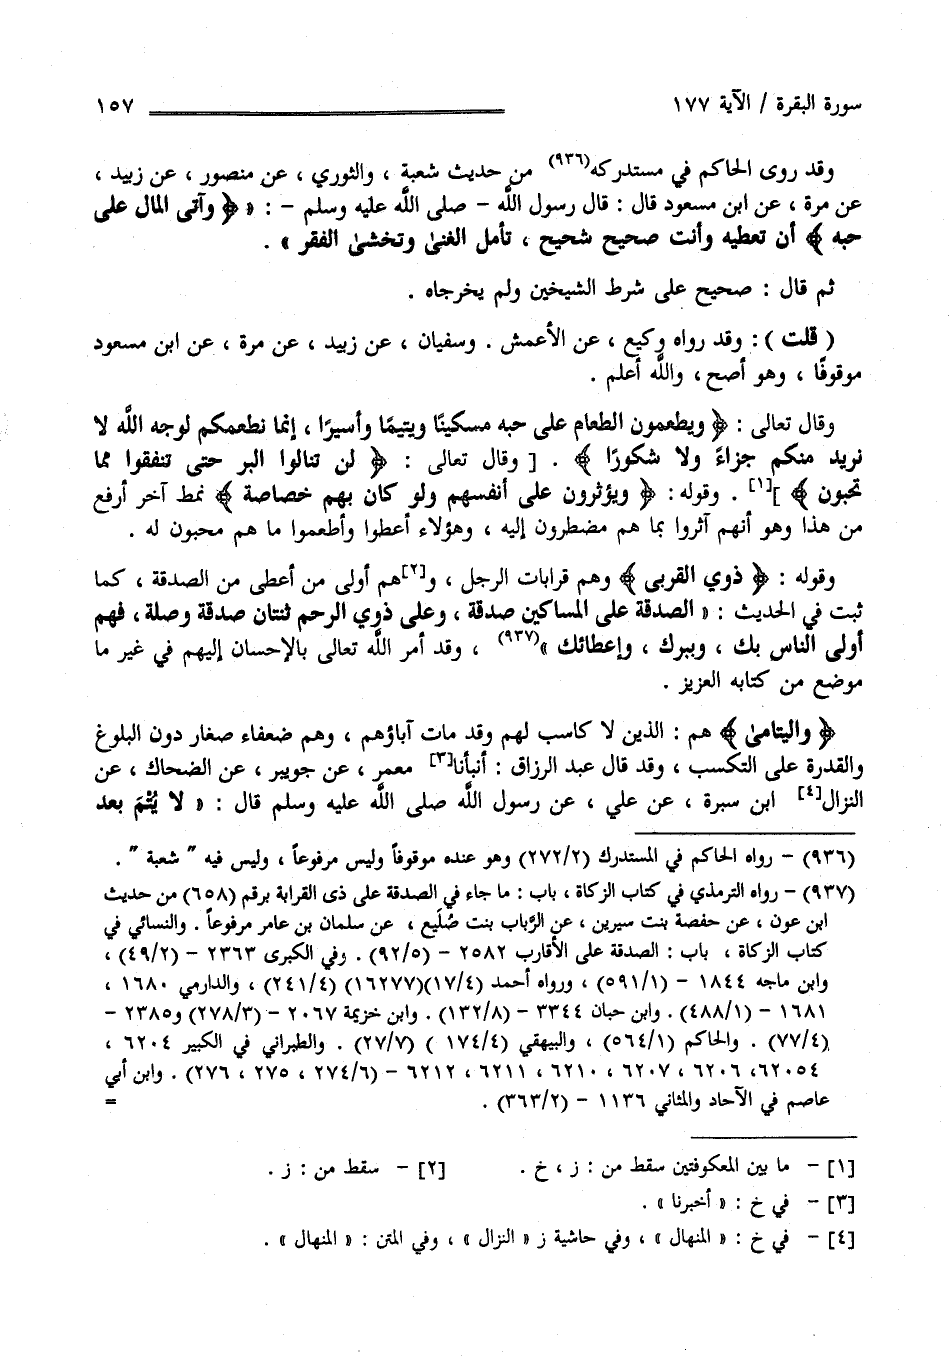 سورة البقرة / الآية ١٧٧ ١٥٧
وقد روى الحاكم في مستدركه(٩٣٦) من حديث شعبة ، والثوري ، عن منصور ، عن زبيد ،
عن مرة ، عن ابن مسعود قال : قال رسول اللَّه - صلى اللَّه عليه وسلم - : « ﴿ وآتى المال على
حبه ﴾ أن تعطيه وأنت صحيح شحيح ، تأمل الغنىٰ وتخشىٰ الفقر » .
ثم قال : صحيح على شرط الشيخين ولم يخرجاه .
( قلت ) : وقد رواه وكيع ، عن الأعمش . وسفيان ، عن زبيد ، عن مرة ، عن ابن مسعود
موقوفًا ، وهو أصح ، واللَّه أعلم .
وقال تعالى : ﴿ ويطعمون الطعام على حبه مسكينًا ويتيمًا وأسيرًا ، إنما نطعمكم لوجه اللَّه لا
نريد منكم جزاءً ولا شكورًا ﴾ . [ وقال تعالى : ﴿ لن تنالوا البر حتى تنفقوا مما
تحبون ﴾ ][١] . وقوله : ﴿ ويؤثرون على أنفسهم ولو كان بهم خصاصة ﴾ نمط آخر أرفع
من هذا وهو أنهم آثروا بما هم مضطرون إليه ، وهؤلاء أعطوا وأطعموا ما هم محبون له .
وقوله : ﴿ ذوي القربى ﴾ وهم قرابات الرجل ، و[٢]هم أولى من أعطى من الصدقة ، كما
ثبت في الحديث : « الصدقة على المساكين صدقة ، وعلى ذوي الرحم ثنتان صدقة وصلة ، فهم
أولى الناس بك ، وببرك ، وإعطائك »(٩٣٧) ، وقد أمر اللَّه تعالى بالإحسان إليهم في غير ما
موضع من كتابه العزيز .
﴿ واليتامىٰ ﴾ هم : الذين لا كاسب لهم وقد مات آباؤهم ، وهم ضعفاء صغار دون البلوغ
والقدرة على التكسب ، وقد قال عبد الرزاق : أنبأنا[٣] معمر ، عن جويبر ، عن الضحاك ، عن
النزال[٤] ابن سبرة ، عن علي ، عن رسول اللَّه صلى اللَّه عليه وسلم قال : « لا يُتْمَ بعد
(٩٣٦) - رواه الحاكم في المستدرك (٢٧٢/٢) وهو عنده موقوفاً وليس مرفوعاً ، وليس فيه " شعبة " .
(٩٣٧) - رواه الترمذي في كتاب الزكاة ، باب : ما جاء في الصدقة على ذى القرابة برقم (٦٥٨) من حديث
ابن عون ، عن حفصة بنت سيرين ، عن الرَّباب بنت صُلَيع ، عن سلمان بن عامر مرفوعاً . والنسائي في
كتاب الزكاة ، باب : الصدقة على الأقارب ٢٥٨٢ - (٩٢/٥) . وفي الكبرى ٢٣٦٣ - (٤٩/٢) ،
وابن ماجه ١٨٤٤ - (٥٩١/١) ، ورواه أحمد (١٧/٤)(١٦٢٧٧) (٢٤١/٤) ، والدارمي ١٦٨٠ ،
١٦٨١ - (٤٨٨/١) . وابن حبان ٣٣٤٤ - (١٣٢/٨) . وابن خزيمة ٢٠٦٧ - (٢٧٨/٣) و٢٣٨٥ -
(٧٧/٤) . والحاكم (٥٦٤/١) ، والبيهقي (١٧٤/٤ ) (٢٧/٧) . والطبراني في الكبير ٦٢٠٤ ،
٦٢٠٥٤، ٦٢٠٦ ، ٦٢٠٧ ، ٦٢١٠ ، ٦٢١١ ، ٦٢١٢ - (٢٧٤/٦ ، ٢٧٥ ، ٢٧٦) . وابن أبي
عاصم في الآحاد والمثاني ١١٣٦ - (٣٦٣/٢) . =
[١] - ما بين المعكوفتين سقط من : ز ، خ . [٢] - سقط من : ز .
[٣] - في خ : « أخبرنا » .
[٤] - في خ : « المنهال » ، وفي حاشية ز « النزال » ، وفي المتن : « المنهال » .